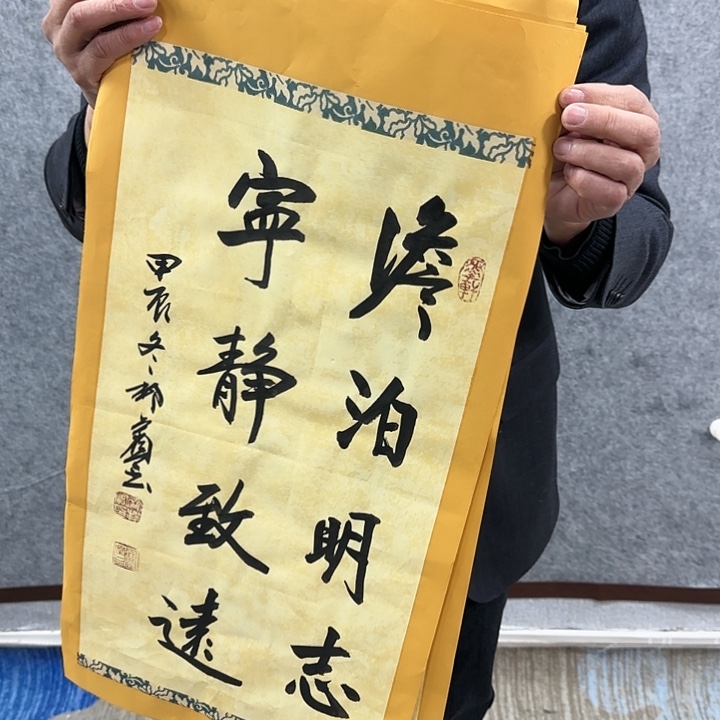 澹泊明志
寧静致遠
甲辰冬